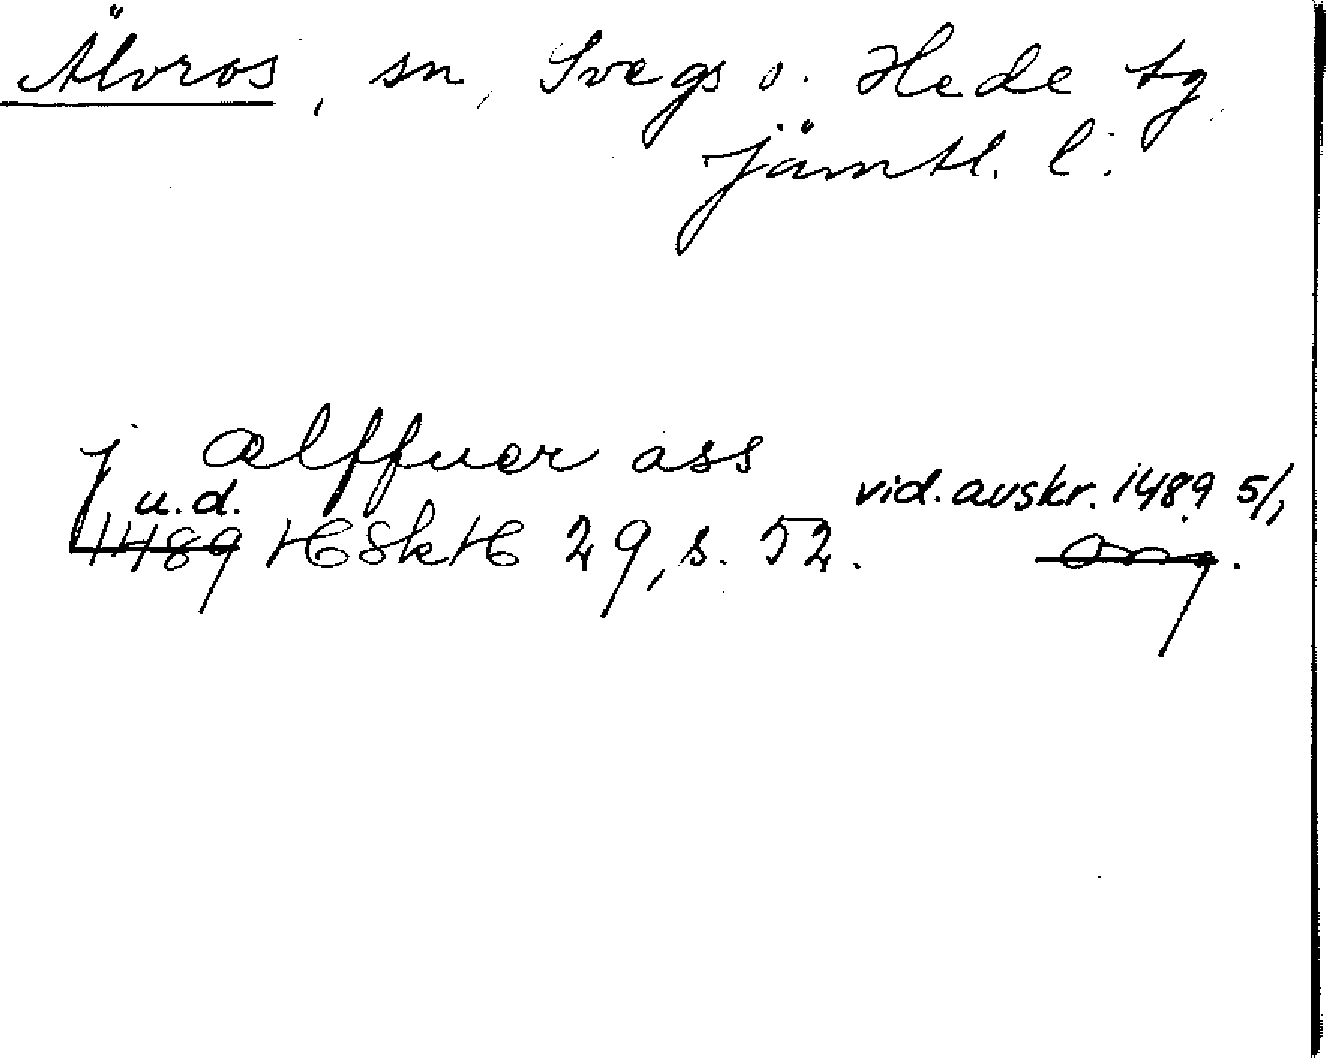 Älvros, sn, Svegs o. Hede tg
Jämtl. l.
j ælffuer ass
u.d. vid. avskr. 1489 5/1
1489 HSkH 29, s. 52. .